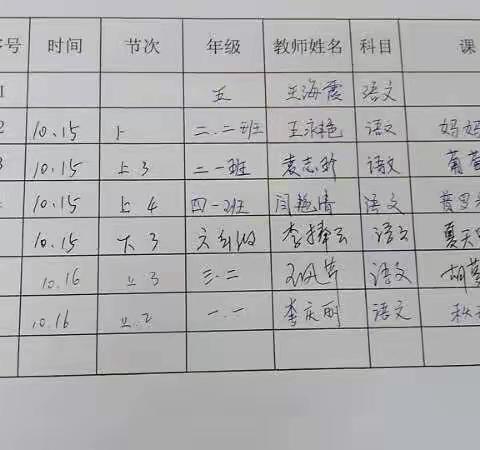 序号 时间 节次 年级 教师姓名 科目 课
1 五 王海霞 语文
2 10.15 上 二.二班 王永艳 语文 妈妈
3 10.15 上3 二一班 袁志珍 语文 葡萄
10.15 上4 四一班 闫艳倩 语文 普罗
10.15 下3 语文 夏天
10.16 上3 三.二 语文 胡萝
10.16 上.2 一.一 李庆丽 语文 秋